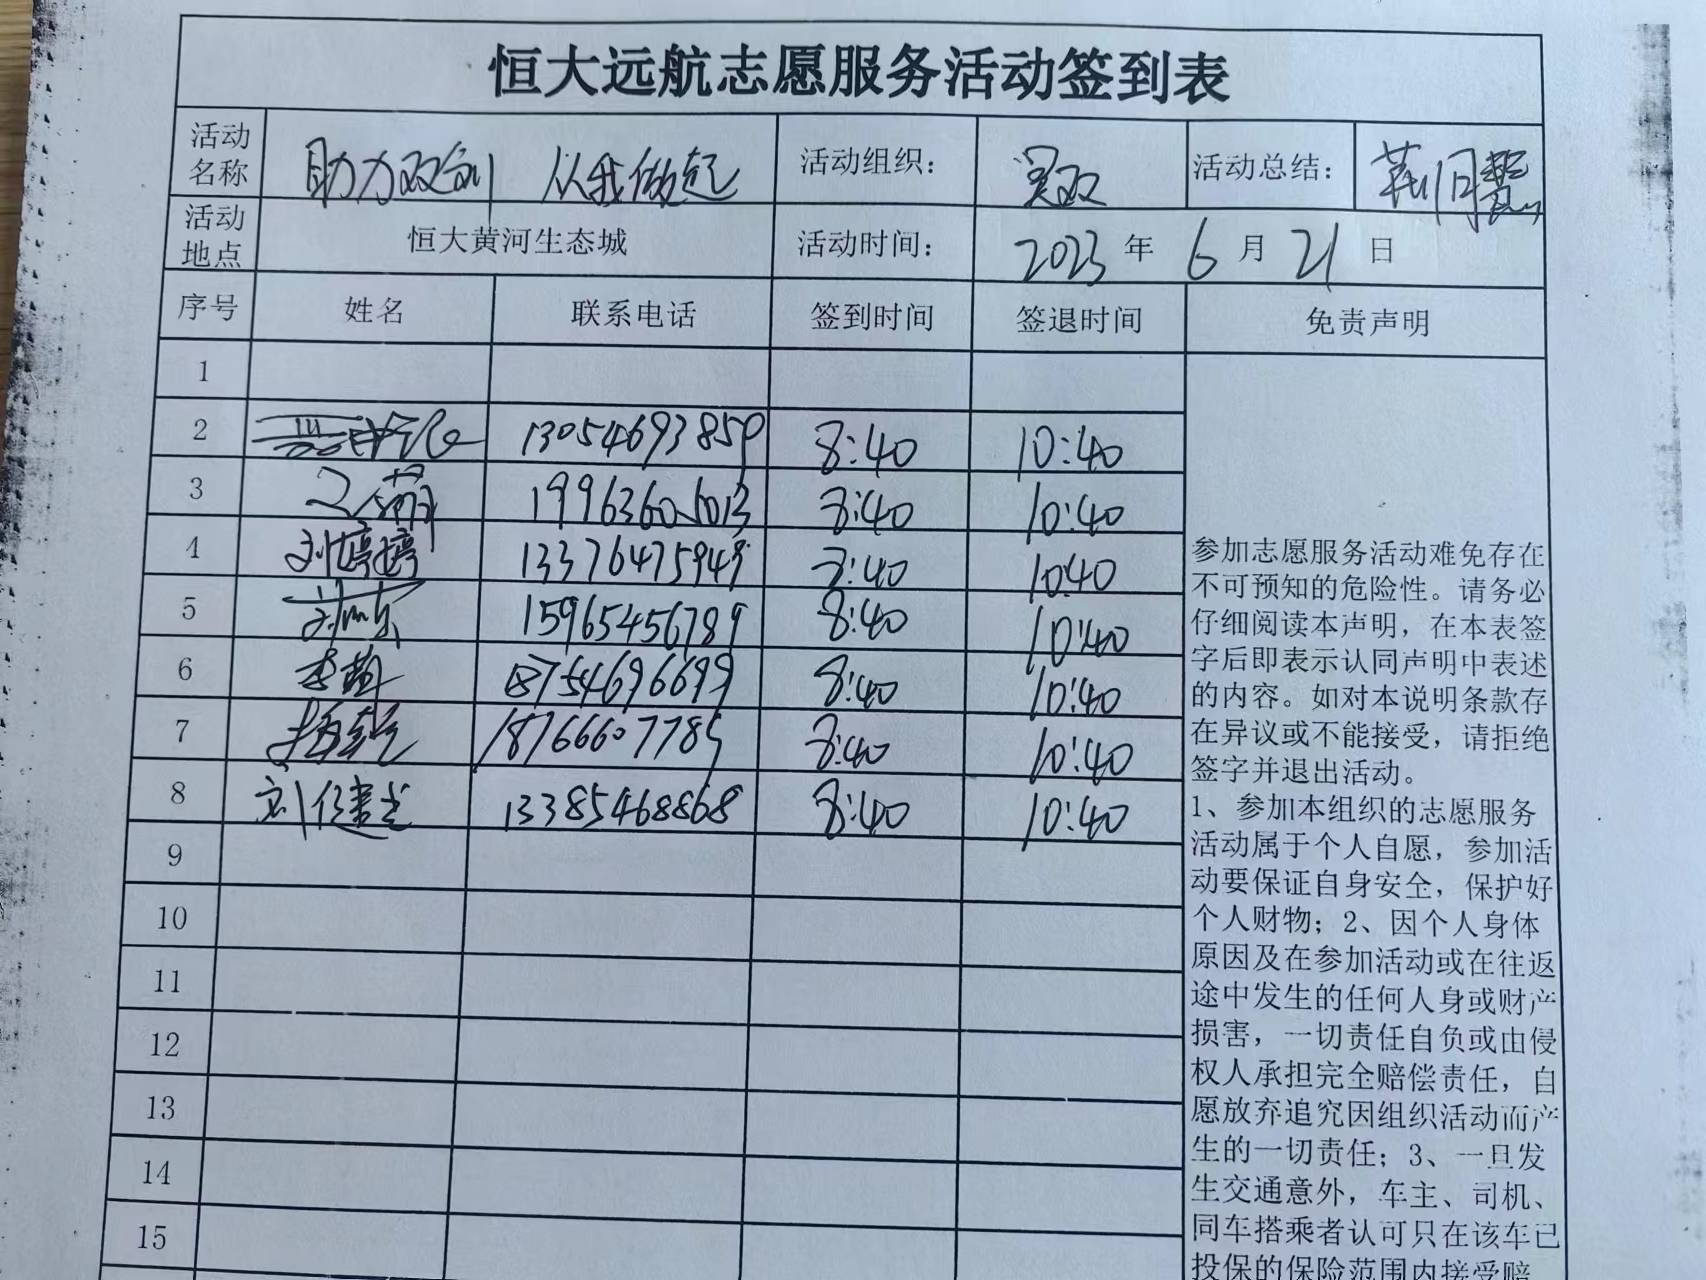 恒大远航志愿服务活动签到表
活动名称 助力双创 从我做起 活动组织： 吴双 活动总结：
活动地点 恒大黄河生态城 活动时间： 2023 年 6 月 21 日
序号 姓名 联系电话 签到时间 签退时间 免责声明
1
2 13054693859 8:40 10:40
3 19963605013 8:40 10:40
4 刘婷婷 13376475949 8:40 10:40
5 15965456789 8:40 10:40
6 18754696699 8:40 10:40
7 18766607785 8:40 10:40
8 13385468868 8:40 10:40
9
10
11
12
13
14
15
参加志愿服务活动难免存在
不可预知的危险性。请务必
仔细阅读本声明，在本表签
字后即表示认同声明中表述
的内容。如对本说明条款存
在异议或不能接受，请拒绝
签字并退出活动。
1、参加本组织的志愿服务
活动属于个人自愿，参加活
动要保证自身安全，保护好
个人财物；2、因个人身体
原因及在参加活动或在往返
途中发生的任何人身或财产
损害，一切责任自负或由侵
权人承担完全赔偿责任，自
愿放弃追究因组织活动而产
生的一切责任；3、一旦发
生交通意外，车主、司机、
同车搭乘者认可只在该车已
投保的保险范围内接受赔